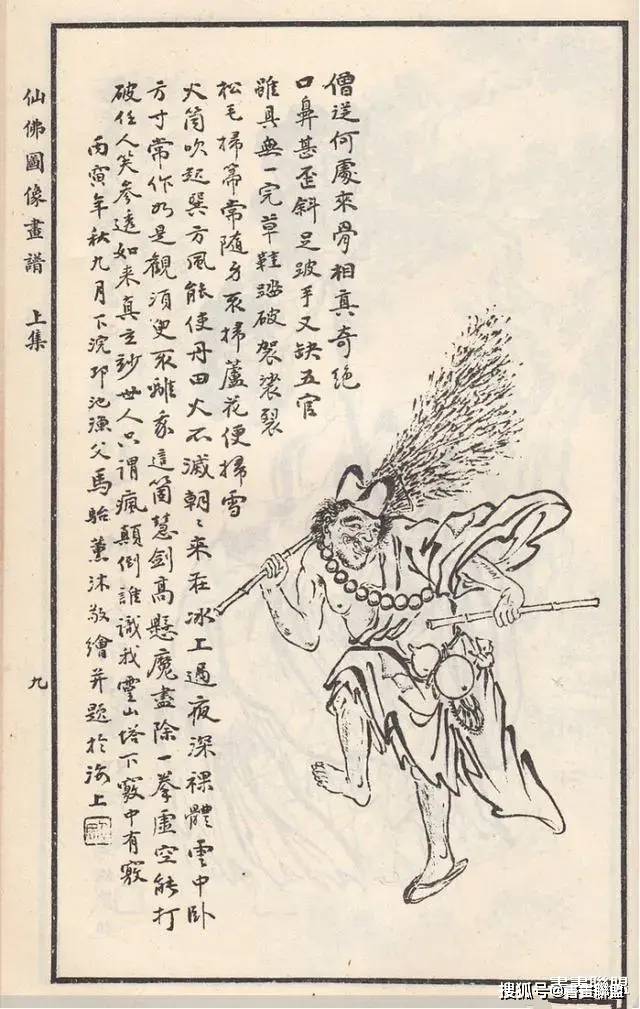 僧從何處來骨相真奇絶
口鼻甚歪斜足跛手又缺五官
雖具無一完草鞋踏破袈裟裂
松毛掃帚常隨身不掃蘆花便掃雪
火筒吹起巽方風能使丹田火不滅朝々來在冰上過夜深裸體雲中臥
方寸常作如是觀須臾不離這箇慧劍高懸魔盡除一拳虛空能打
破任人笑參透如来真立妙世人只謂瘋顛倒誰識我靈山塔下竅中有竅
丙寅年秋九月下浣邗池漁父馬駘薰沐敬繪并題於海上
仙佛圖像畫譜 上集
九
搜狐号@書畫聯盟